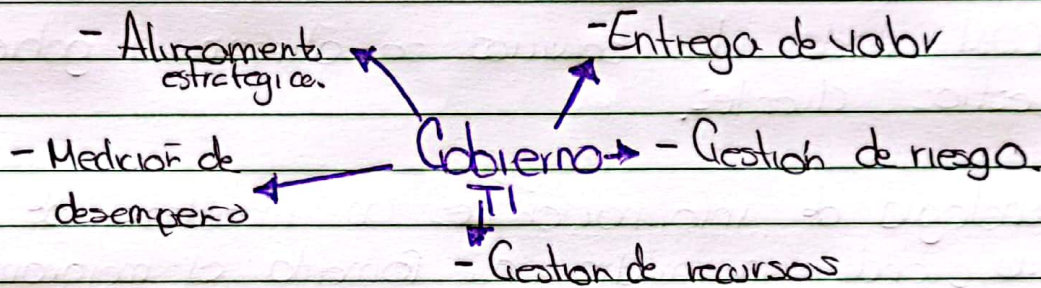 - Alineamento
estrategico.
- Entrega de valor
- Medición de
desempeño
Gobierno
TI
- Gestión de riesgo
- Gestion de recursos